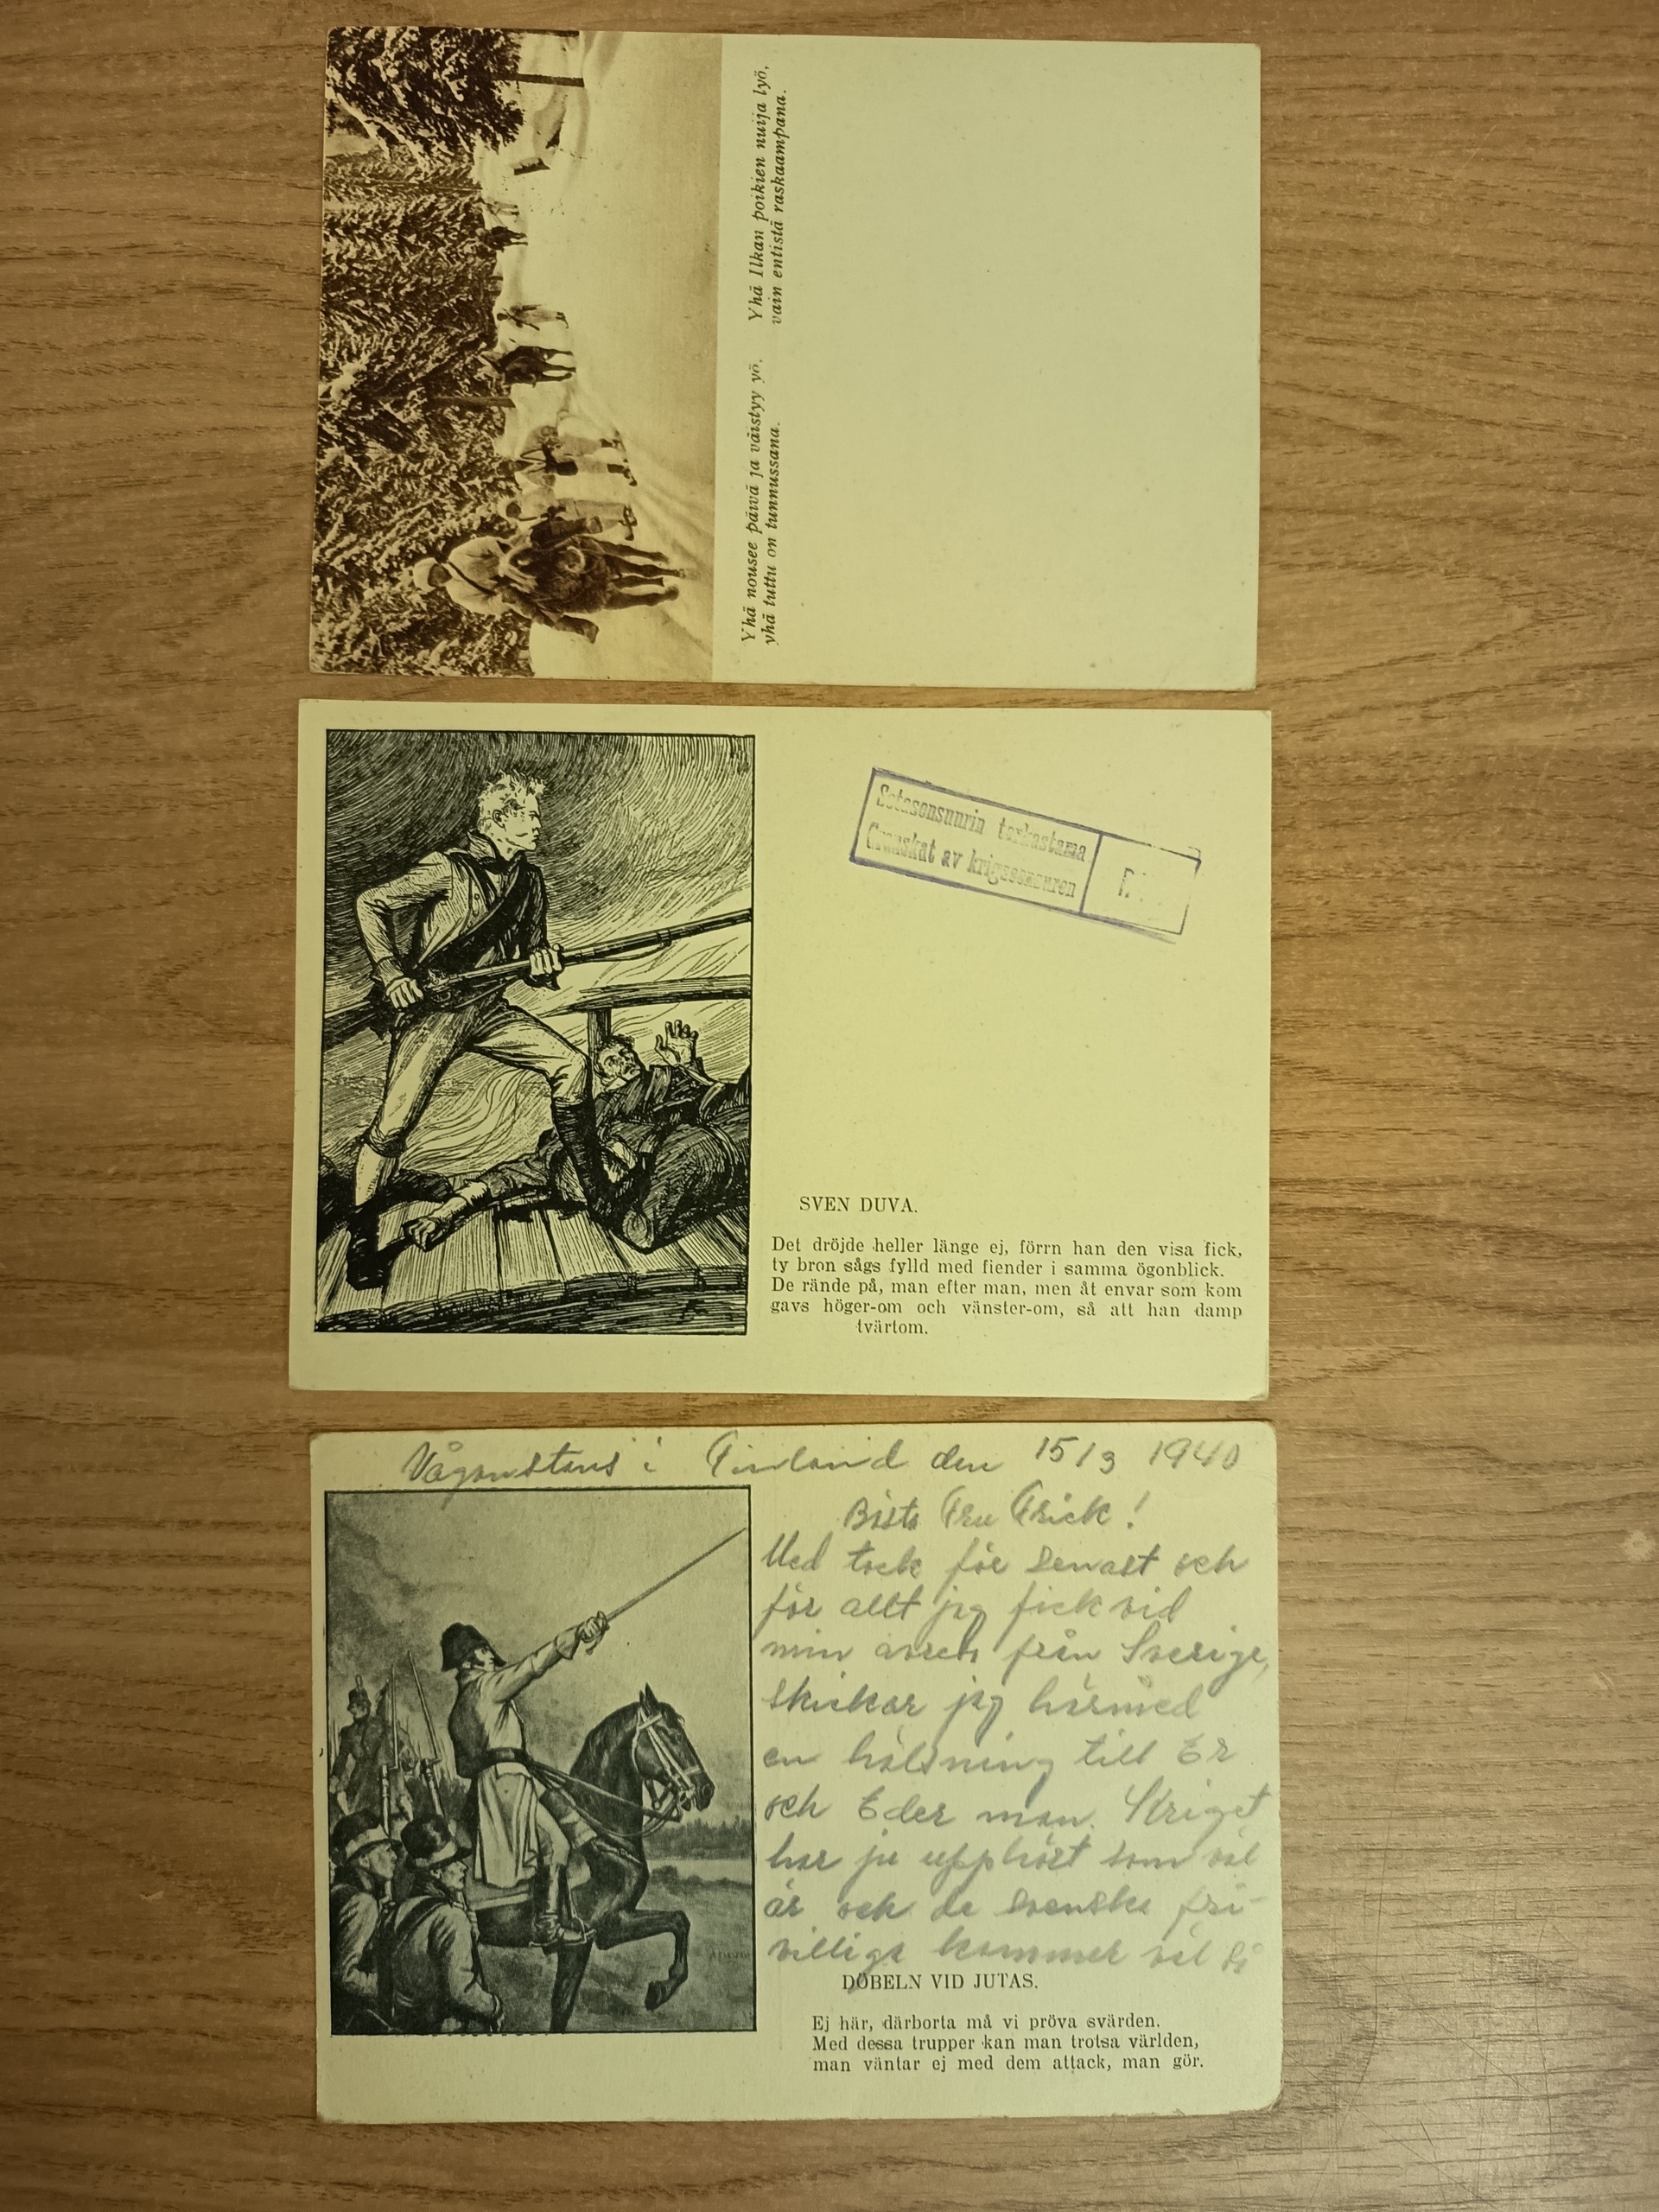 Yhä nousee päivä ja väistyy yö,
yhä tuttu on tunnussana.
Yhä Ilkan poikien nuija lyö,
vain entistä raskaampana.
Sotasensuurin tarkastama
Granskat av krigscensuren
SVEN DUVA.
Det dröjde heller länge ej, förrn han den visa fick,
ty bron sågs fylld med fiender i samma ögonblick.
De rände på, man efter man, men åt envar som kom
gavs höger-om och vänster-om, så att han damp
tvärtom.
i Finland den 15/3 1940
Bästa Fru Frick!
Med tack för senast och
för allt jag fick vid
min avresa från Sverige,
skickar jag härmed
en hälsning till Er
och Eder man. Kriget
har ju upphört som väl
är och de svenska fri-
villiga kommer väl
DÖBELN VID JUTAS.
Ej här, därborta må vi pröva svärden.
Med dessa trupper kan man trotsa världen,
man väntar ej med dem attack, man gör.